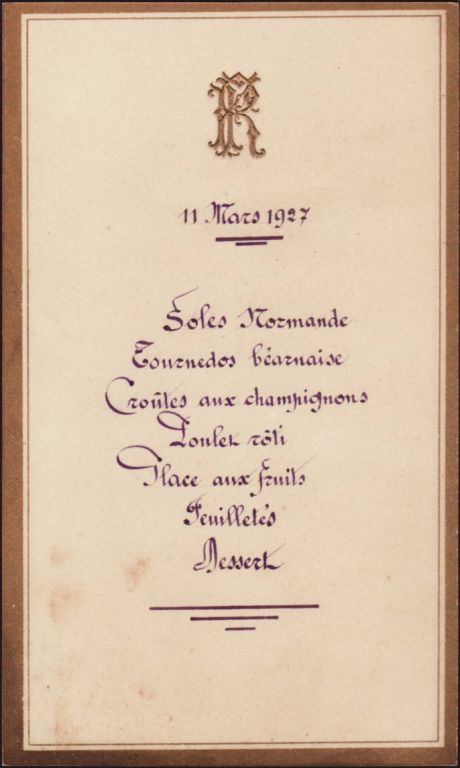 11 Mars 1927
Soles Normande
Tournedos béarnaise
Croûtes aux champignons
Poulet rôti
Glace aux fruits
Feuilletés
Dessert